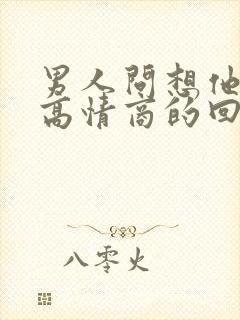 男人問想他
高情商的回
八零火